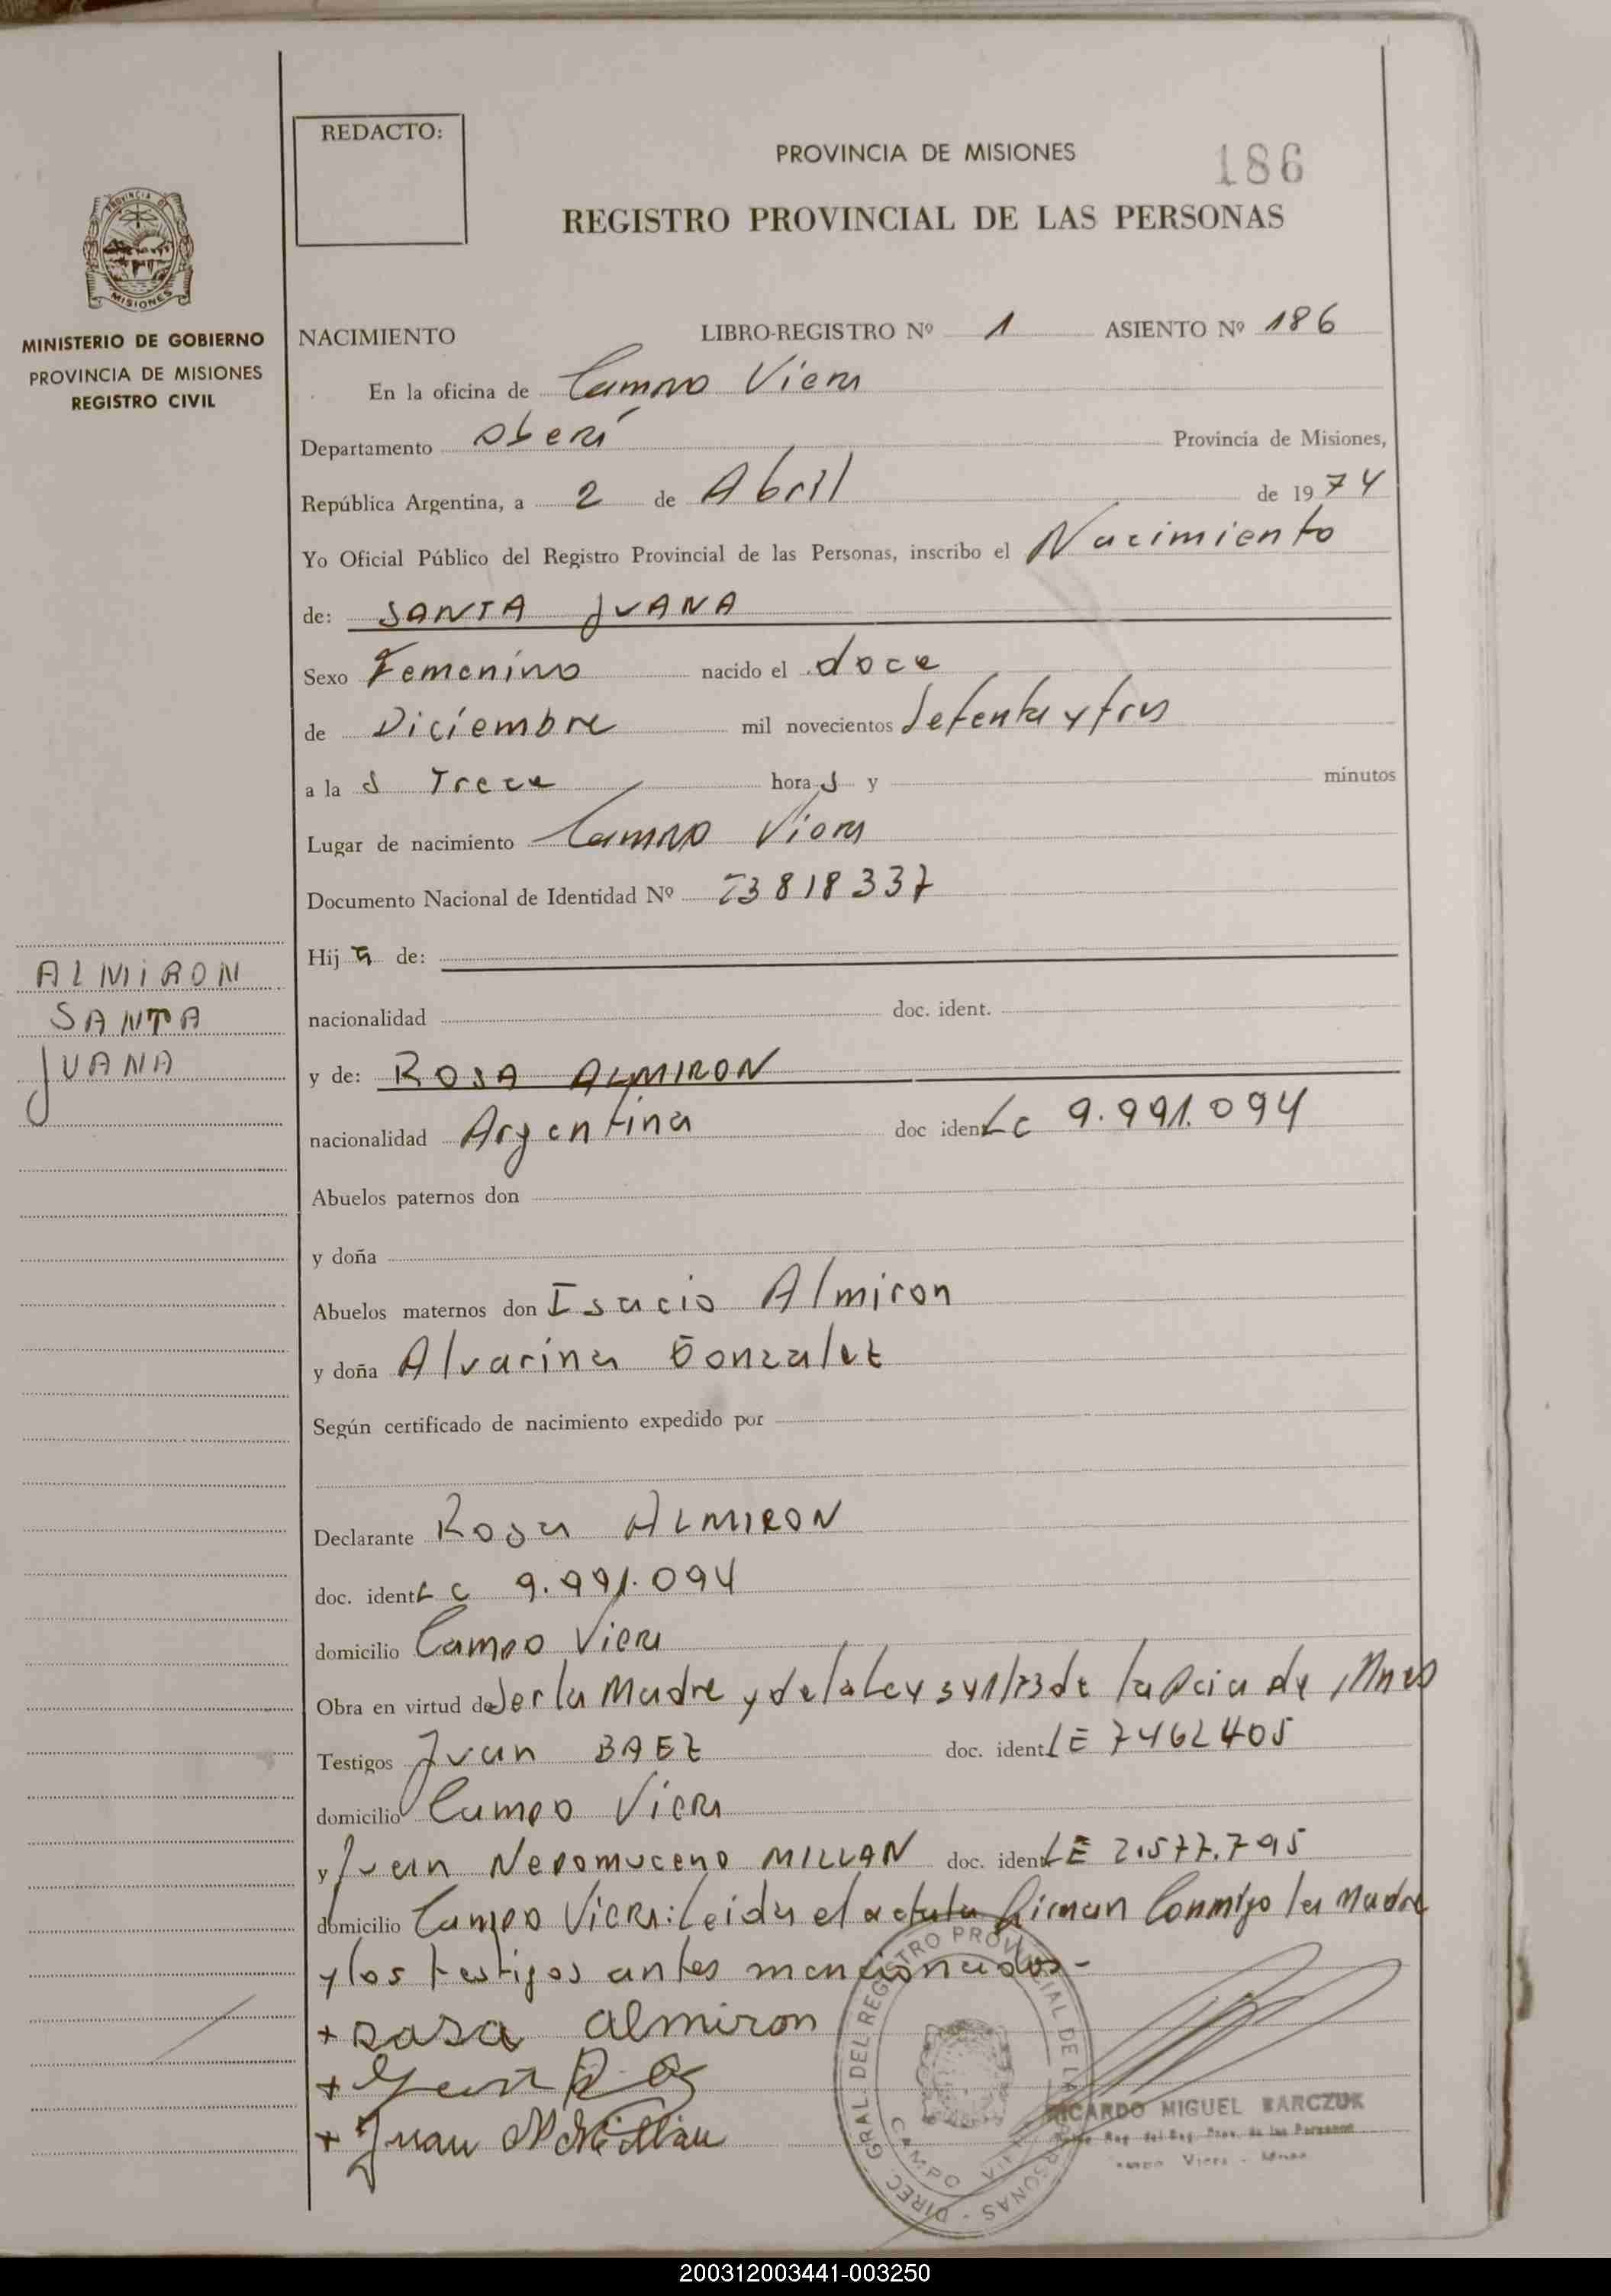 REDACTO:
PROVINCIA DE MISIONES
186
REGISTRO PROVINCIAL DE LAS PERSONAS
PROVINCIA DE
MISIONES
MINISTERIO DE GOBIERNO
PROVINCIA DE MISIONES
REGISTRO CIVIL
NACIMIENTO LIBRO-REGISTRO Nº 1 ASIENTO Nº 186
En la oficina de Campo Viera
Departamento Oberí Provincia de Misiones,
República Argentina, a 2 de Abril de 1974
Yo Oficial Público del Registro Provincial de las Personas, inscribo el Nacimiento
de: SANTA JUANA
Sexo Femenino nacido el doce
de Diciembre mil novecientos Setenta y tres
a la s Trece hora s y minutos
Lugar de nacimiento Campo Viera
Documento Nacional de Identidad Nº 23818337
Hij a de:
nacionalidad doc. ident.
ALMIRON
SANTA
JUANA
y de: ROSA ALMIRON
nacionalidad Argentina doc ident LC 9.991.094
Abuelos paternos don
y doña
Abuelos maternos don Isacio Almiron
y doña Alvarina Gonzalez
Según certificado de nacimiento expedido por
Declarante Rosa ALMIRON
doc. ident LC 9.991.094
domicilio Campo Viera
Obra en virtud de Ser la Madre y de la Ley de la Pcia de Mnes
Testigos Juan BAEZ doc. ident LE 7462405
domicilio Campo Viera
y Juan Nepomuceno MILLAN doc. ident LE 2.577.795
domicilio Campo Viera: Leida el acta la Firman Conmigo la Madre
y los testigos antes mencionados-
+ rosa almiron
+ Juan
+ Juan N Millan
DIREC. GRAL. DEL REGISTRO PROVINCIAL DE LAS PERSONAS -
CAMPO VIERA
RICARDO MIGUEL BARCZUK
Campo Viera - Mnes.
200312003441-003250